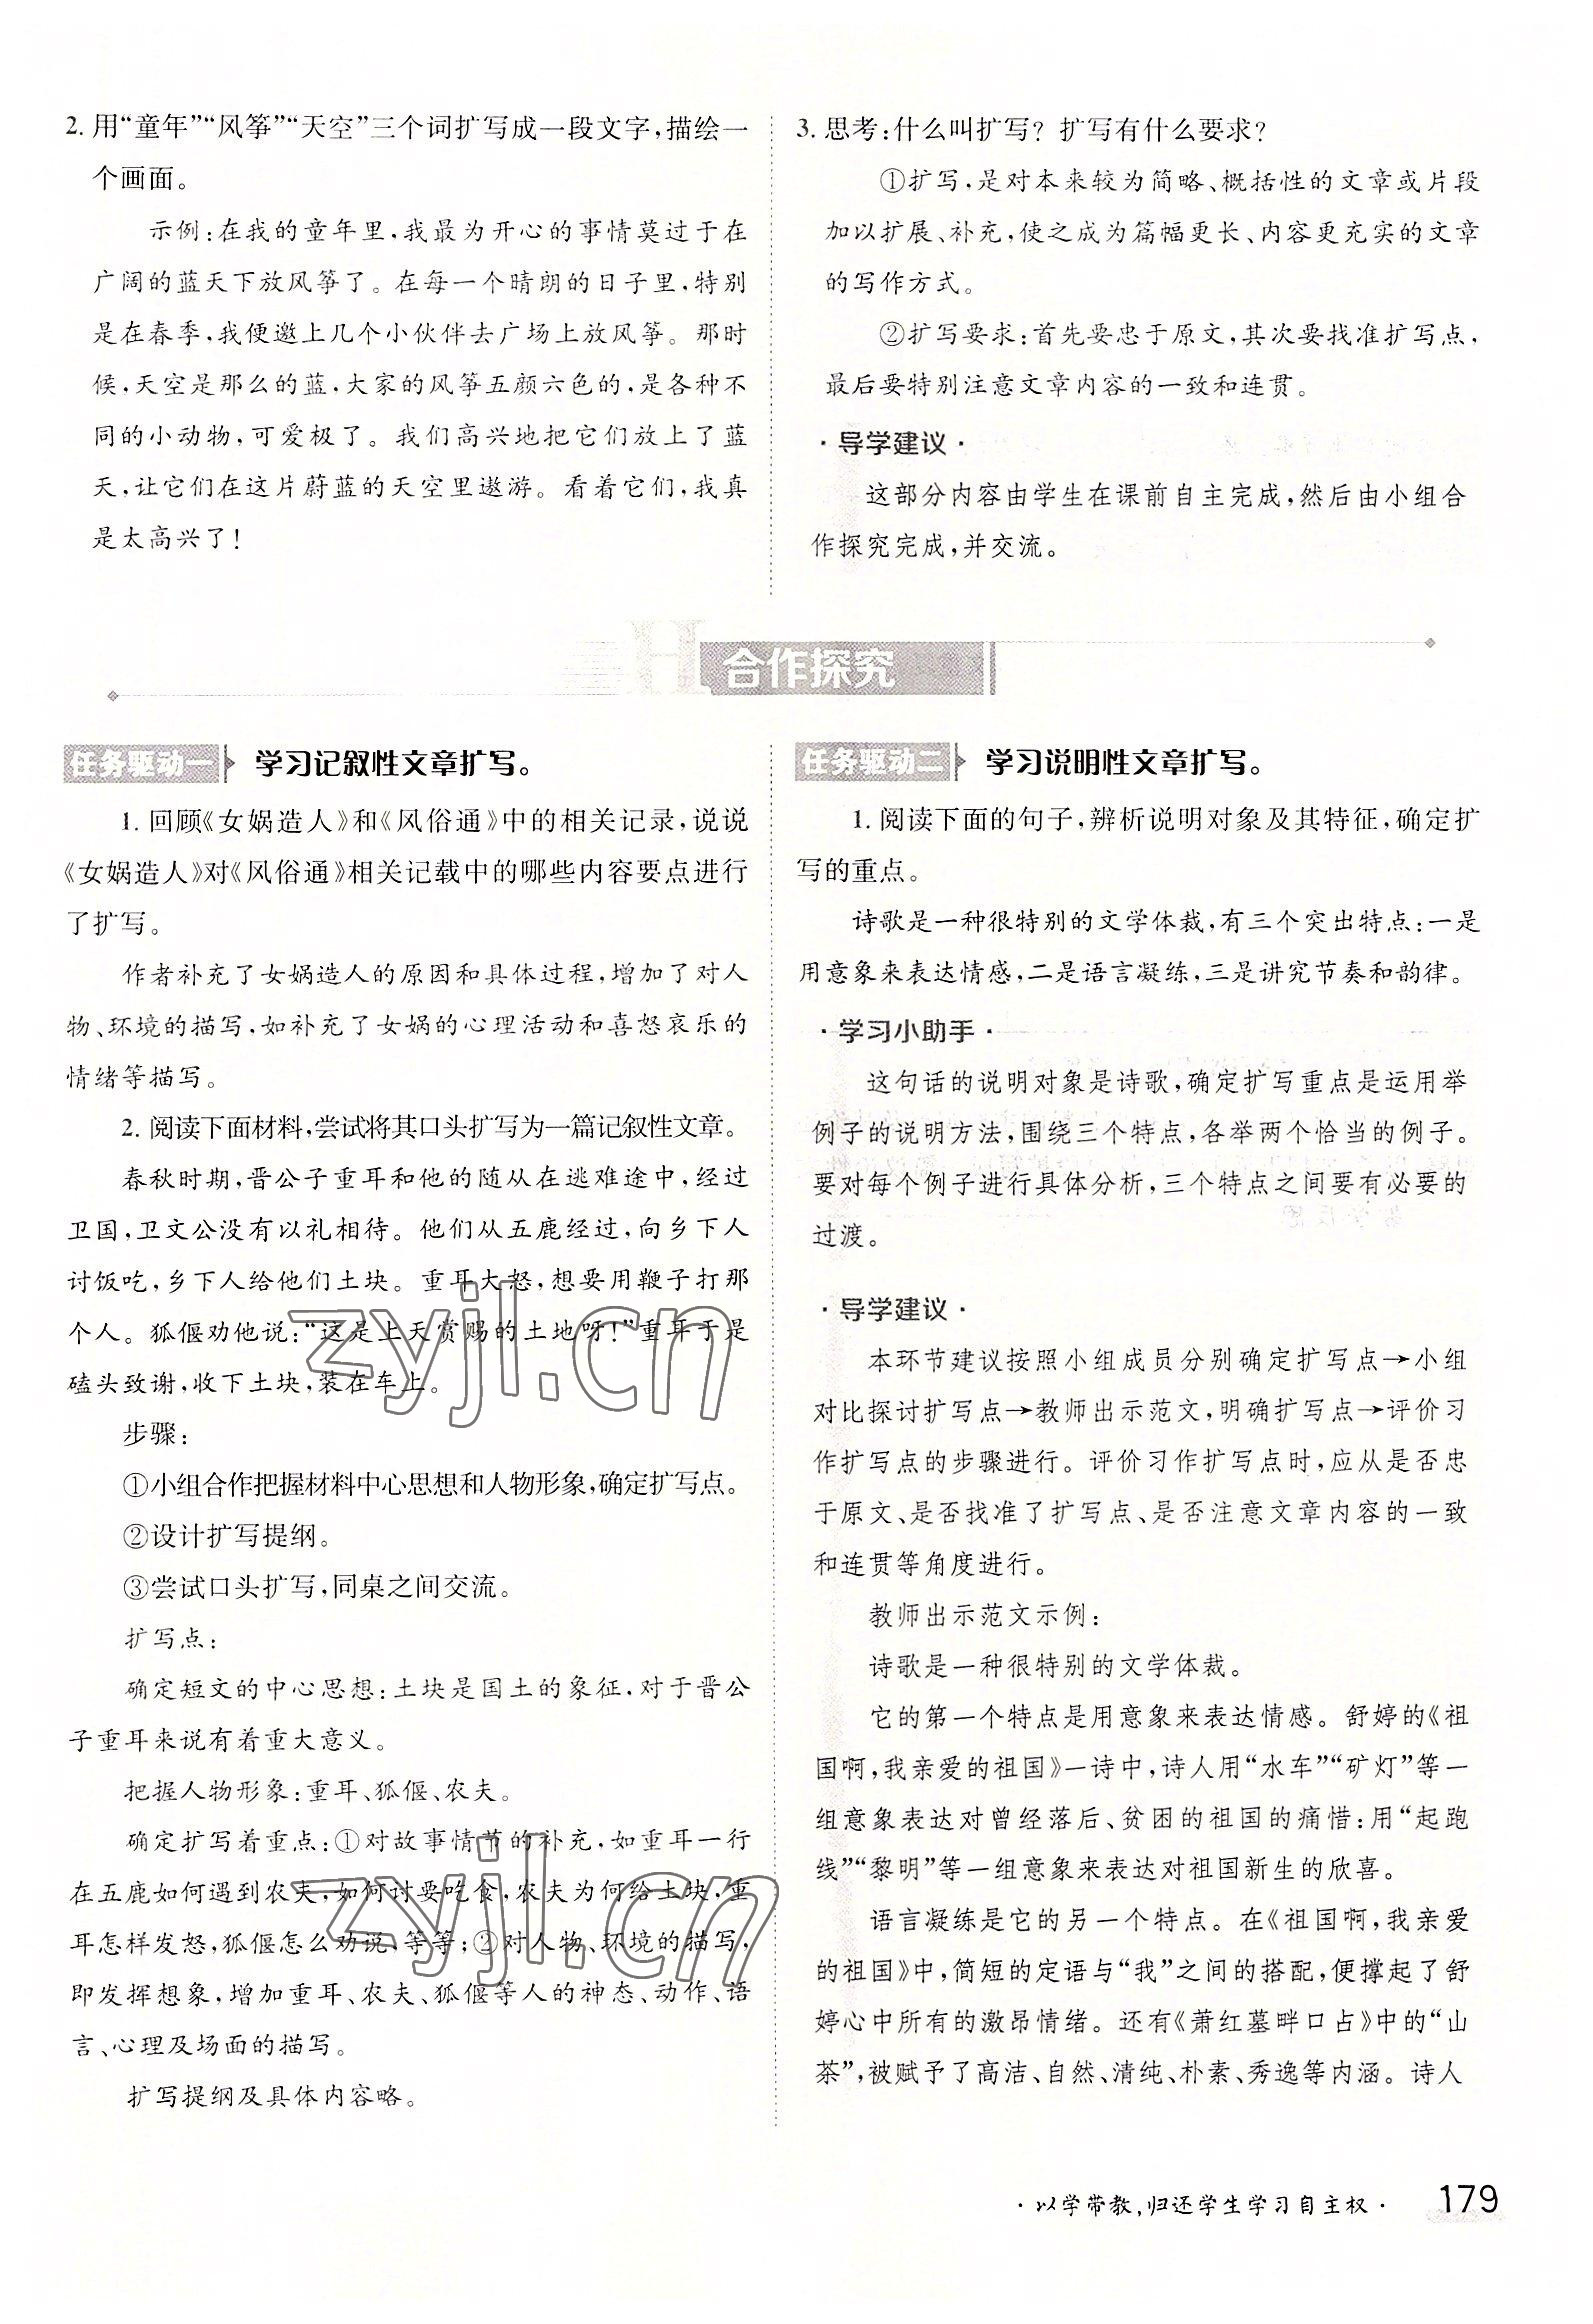 2. 用“童年”“风筝”“天空”三个词扩写成一段文字,描绘一
个画面。
示例:在我的童年里,我最为开心的事情莫过于在
广阔的蓝天下放风筝了。在每一个晴朗的日子里,特别
是在春季,我便邀上几个小伙伴去广场上放风筝。那时
候,天空是那么的蓝,大家的风筝五颜六色的,是各种不
同的小动物,可爱极了。我们高兴地把它们放上了蓝
天,让它们在这片蔚蓝的天空里遨游。看着它们,我真
是太高兴了!
3. 思考:什么叫扩写? 扩写有什么要求?
①扩写,是对本来较为简略、概括性的文章或片段
加以扩展、补充,使之成为篇幅更长、内容更充实的文章
的写作方式。
②扩写要求:首先要忠于原文,其次要找准扩写点,
最后要特别注意文章内容的一致和连贯。
·导学建议·
这部分内容由学生在课前自主完成,然后由小组合
作探究完成,并交流。
H 合作探究
任务驱动一 学习记叙性文章扩写。
1. 回顾《女娲造人》和《风俗通》中的相关记录,说说
《女娲造人》对《风俗通》相关记载中的哪些内容要点进行
了扩写。
作者补充了女娲造人的原因和具体过程,增加了对人
物、环境的描写,如补充了女娲的心理活动和喜怒哀乐的
情绪等描写。
2. 阅读下面材料,尝试将其口头扩写为一篇记叙性文章。
春秋时期,晋公子重耳和他的随从在逃难途中,经过
卫国,卫文公没有以礼相待。他们从五鹿经过,向乡下人
讨饭吃,乡下人给他们土块。重耳大怒,想要用鞭子打那
个人。狐偃劝他说:“这是上天赏赐的土地呀!”重耳于是
磕头致谢,收下土块,装在车上。
步骤:
①小组合作把握材料中心思想和人物形象,确定扩写点。
②设计扩写提纲。
③尝试口头扩写,同桌之间交流。
扩写点:
确定短文的中心思想:土块是国土的象征,对于晋公
子重耳来说有着重大意义。
把握人物形象:重耳、狐偃、农夫。
确定扩写着重点:①对故事情节的补充,如重耳一行
在五鹿如何遇到农夫,如何讨要吃食,农夫为何给土块,重
耳怎样发怒,狐偃怎么劝说,等等;②对人物、环境的描写,
即发挥想象,增加重耳、农夫、狐偃等人的神态、动作、语
言、心理及场面的描写。
扩写提纲及具体内容略。
任务驱动二 学习说明性文章扩写。
1. 阅读下面的句子,辨析说明对象及其特征,确定扩
写的重点。
诗歌是一种很特别的文学体裁,有三个突出特点:一是
用意象来表达情感,二是语言凝练,三是讲究节奏和韵律。
·学习小助手·
这句话的说明对象是诗歌,确定扩写重点是运用举
例子的说明方法,围绕三个特点,各举两个恰当的例子。
要对每个例子进行具体分析,三个特点之间要有必要的
过渡。
·导学建议·
本环节建议按照小组成员分别确定扩写点→小组
对比探讨扩写点→教师出示范文,明确扩写点→评价习
作扩写点的步骤进行。评价习作扩写点时,应从是否忠
于原文、是否找准了扩写点、是否注意文章内容的一致
和连贯等角度进行。
教师出示范文示例:
诗歌是一种很特别的文学体裁。
它的第一个特点是用意象来表达情感。舒婷的《祖
国啊,我亲爱的祖国》一诗中,诗人用“水车”“矿灯”等一
组意象表达对曾经落后、贫困的祖国的痛惜:用“起跑
线”“黎明”等一组意象来表达对祖国新生的欣喜。
语言凝练是它的另一个特点。在《祖国啊,我亲爱
的祖国》中,简短的定语与“我”之间的搭配,便撑起了舒
婷心中所有的激昂情绪。还有《萧红墓畔口占》中的“山
茶”,被赋予了高洁、自然、清纯、朴素、秀逸等内涵。诗人
zyjl.cn
zyjl.cn
·以学带教,归还学生学习自主权· 179